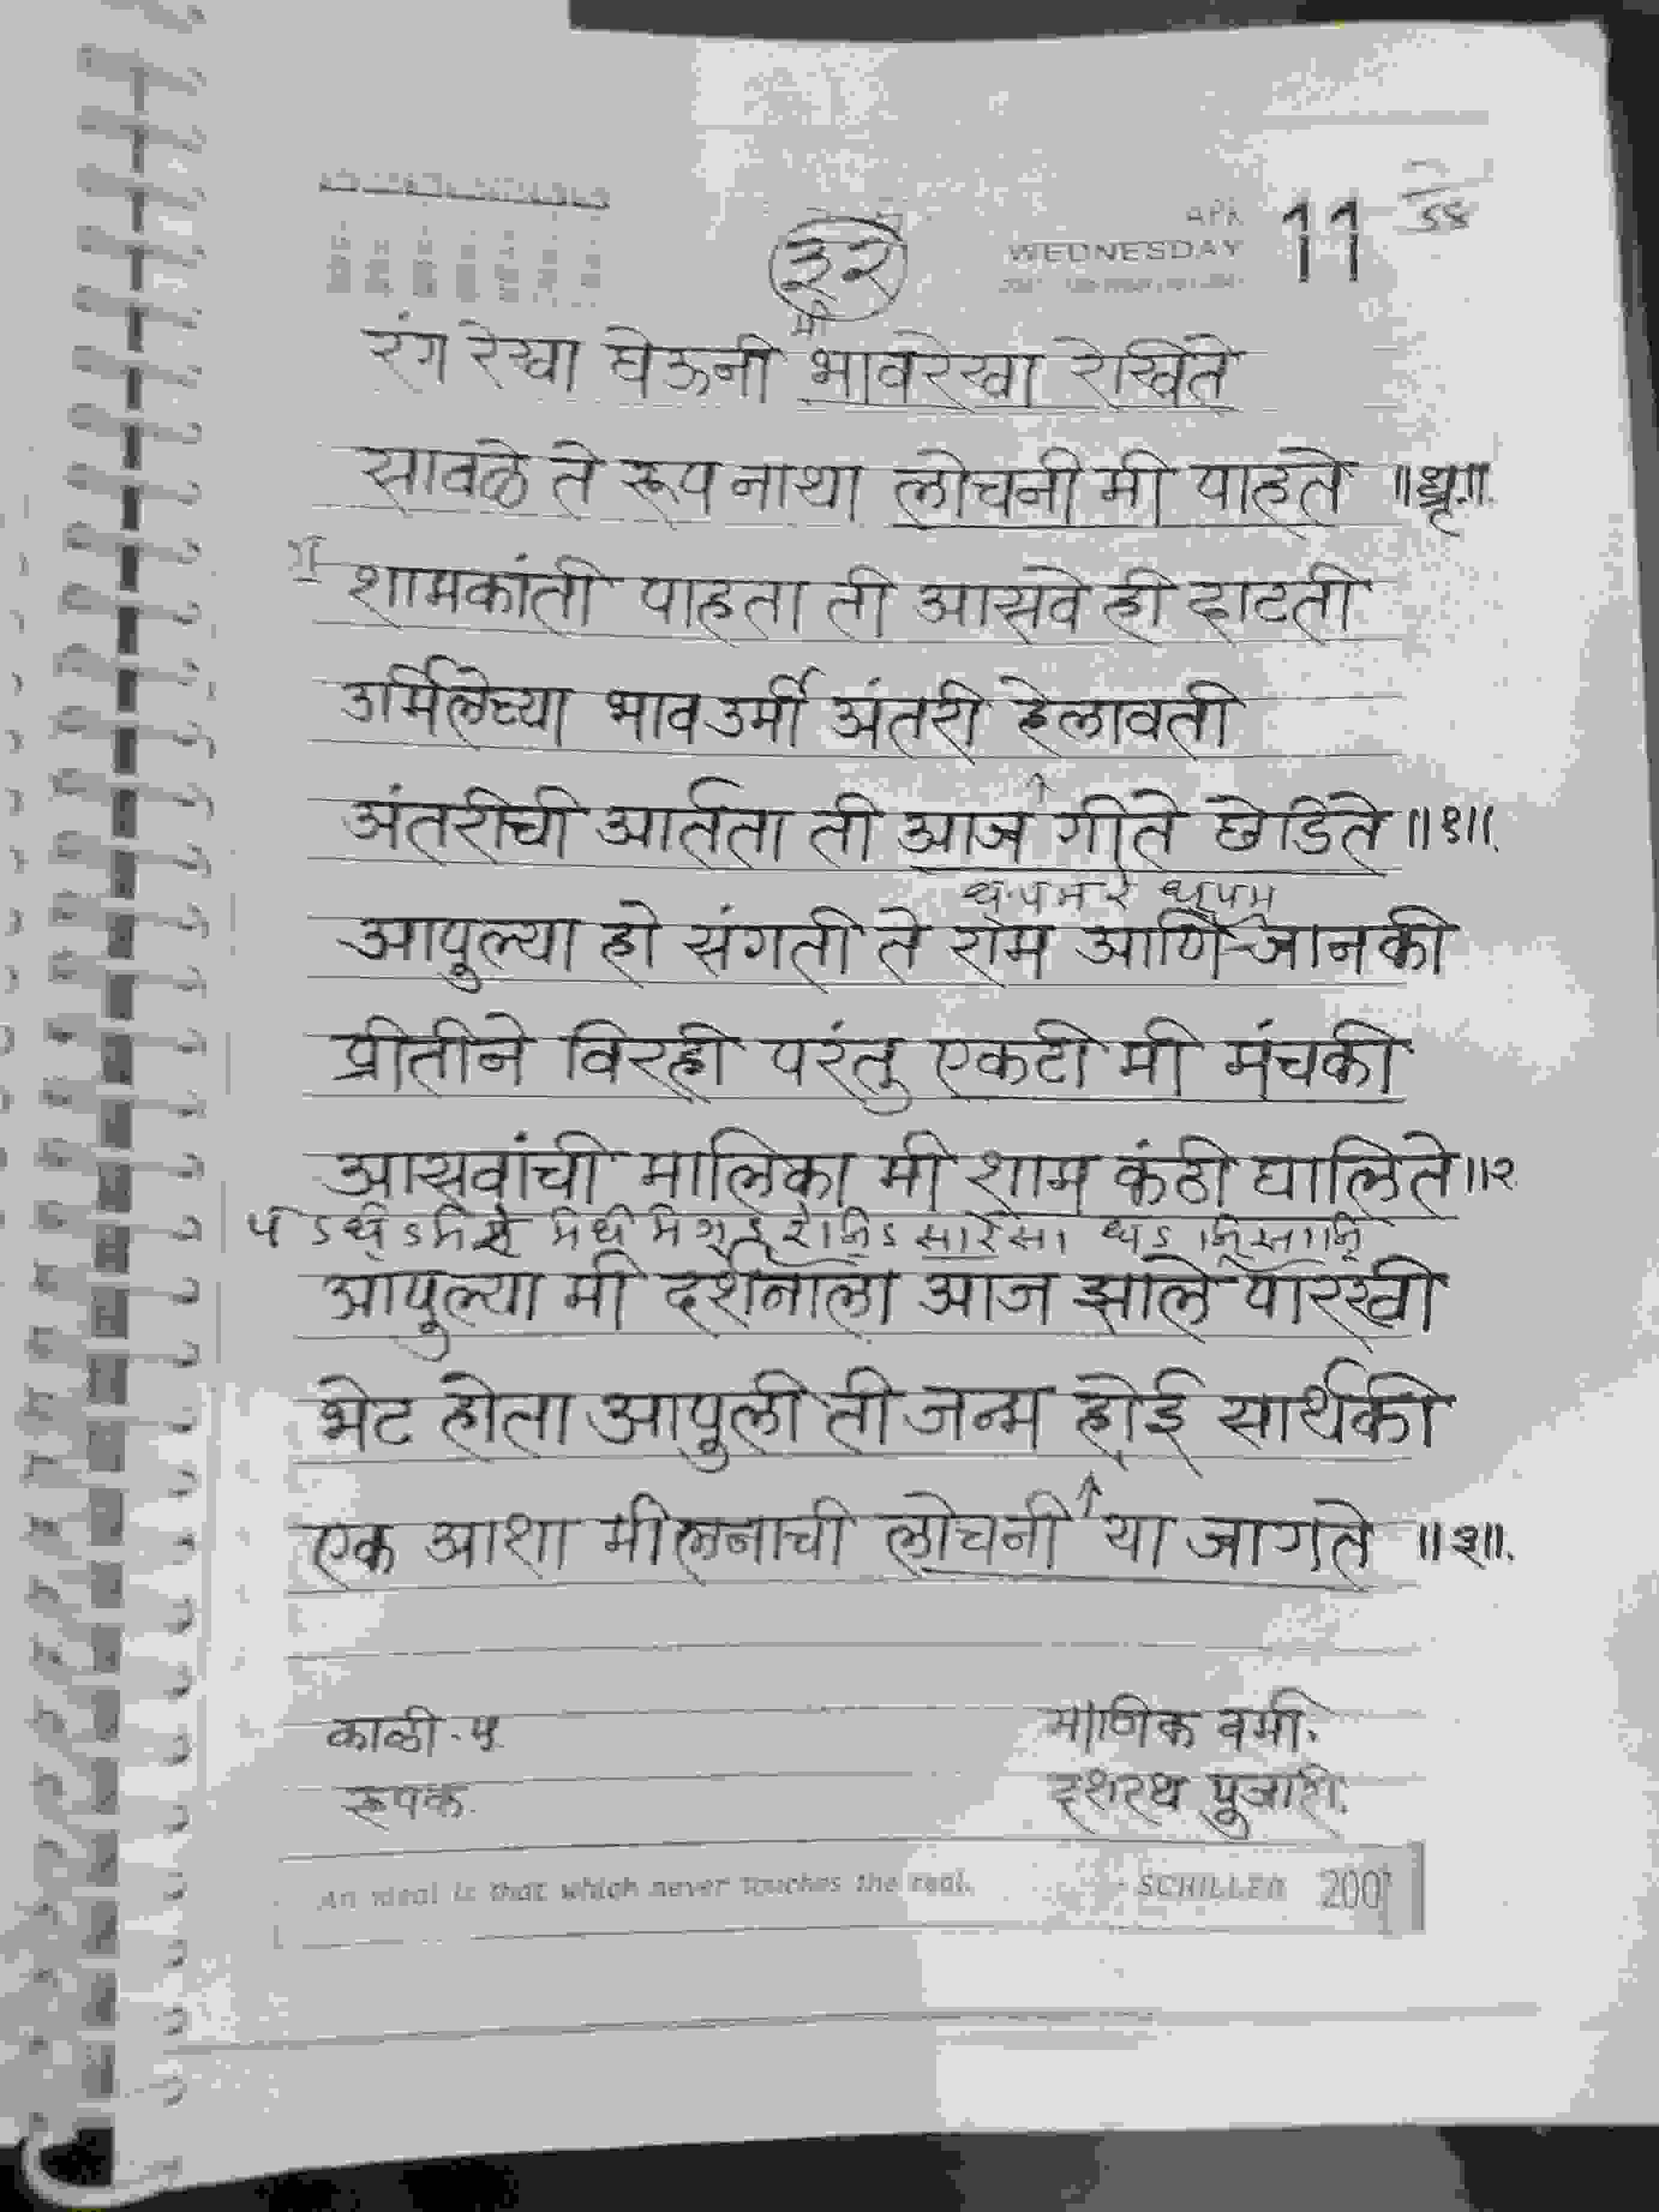 APR
WEDNESDAY 11
३२
मी
रंग रेखा घेऊनी भावरेखा रेखिते
सावळे ते रूप नाथा लोचनी मी पाहते ॥धृ॥
शामकांती पाहता ती आसवे ही दाटती
उर्मिलेच्या भावउर्मी अंतरी हेलावती
अंतरीची आर्तता ती आज गीते छेडिते ॥१॥
ध प म रे ध प म
आपुल्या हो संगती ते राम आणि जानकी
प्रीतीने विरही परंतु एकटी मी मंचकी
आसवांची मालिका मी शाम कंठी घालिते ॥२
आपुल्या मी दर्शनाला आज झाले पारखी
भेट होता आपुली ती जन्म होई सार्थकी
एक आशा मीलनाची लोचनी या जागते ॥३॥.
काळी-५ माणिक वर्मा.
रूपक. दशरथ पुजारी.
An ideal is that which never touches the real. - SCHILLER 2001